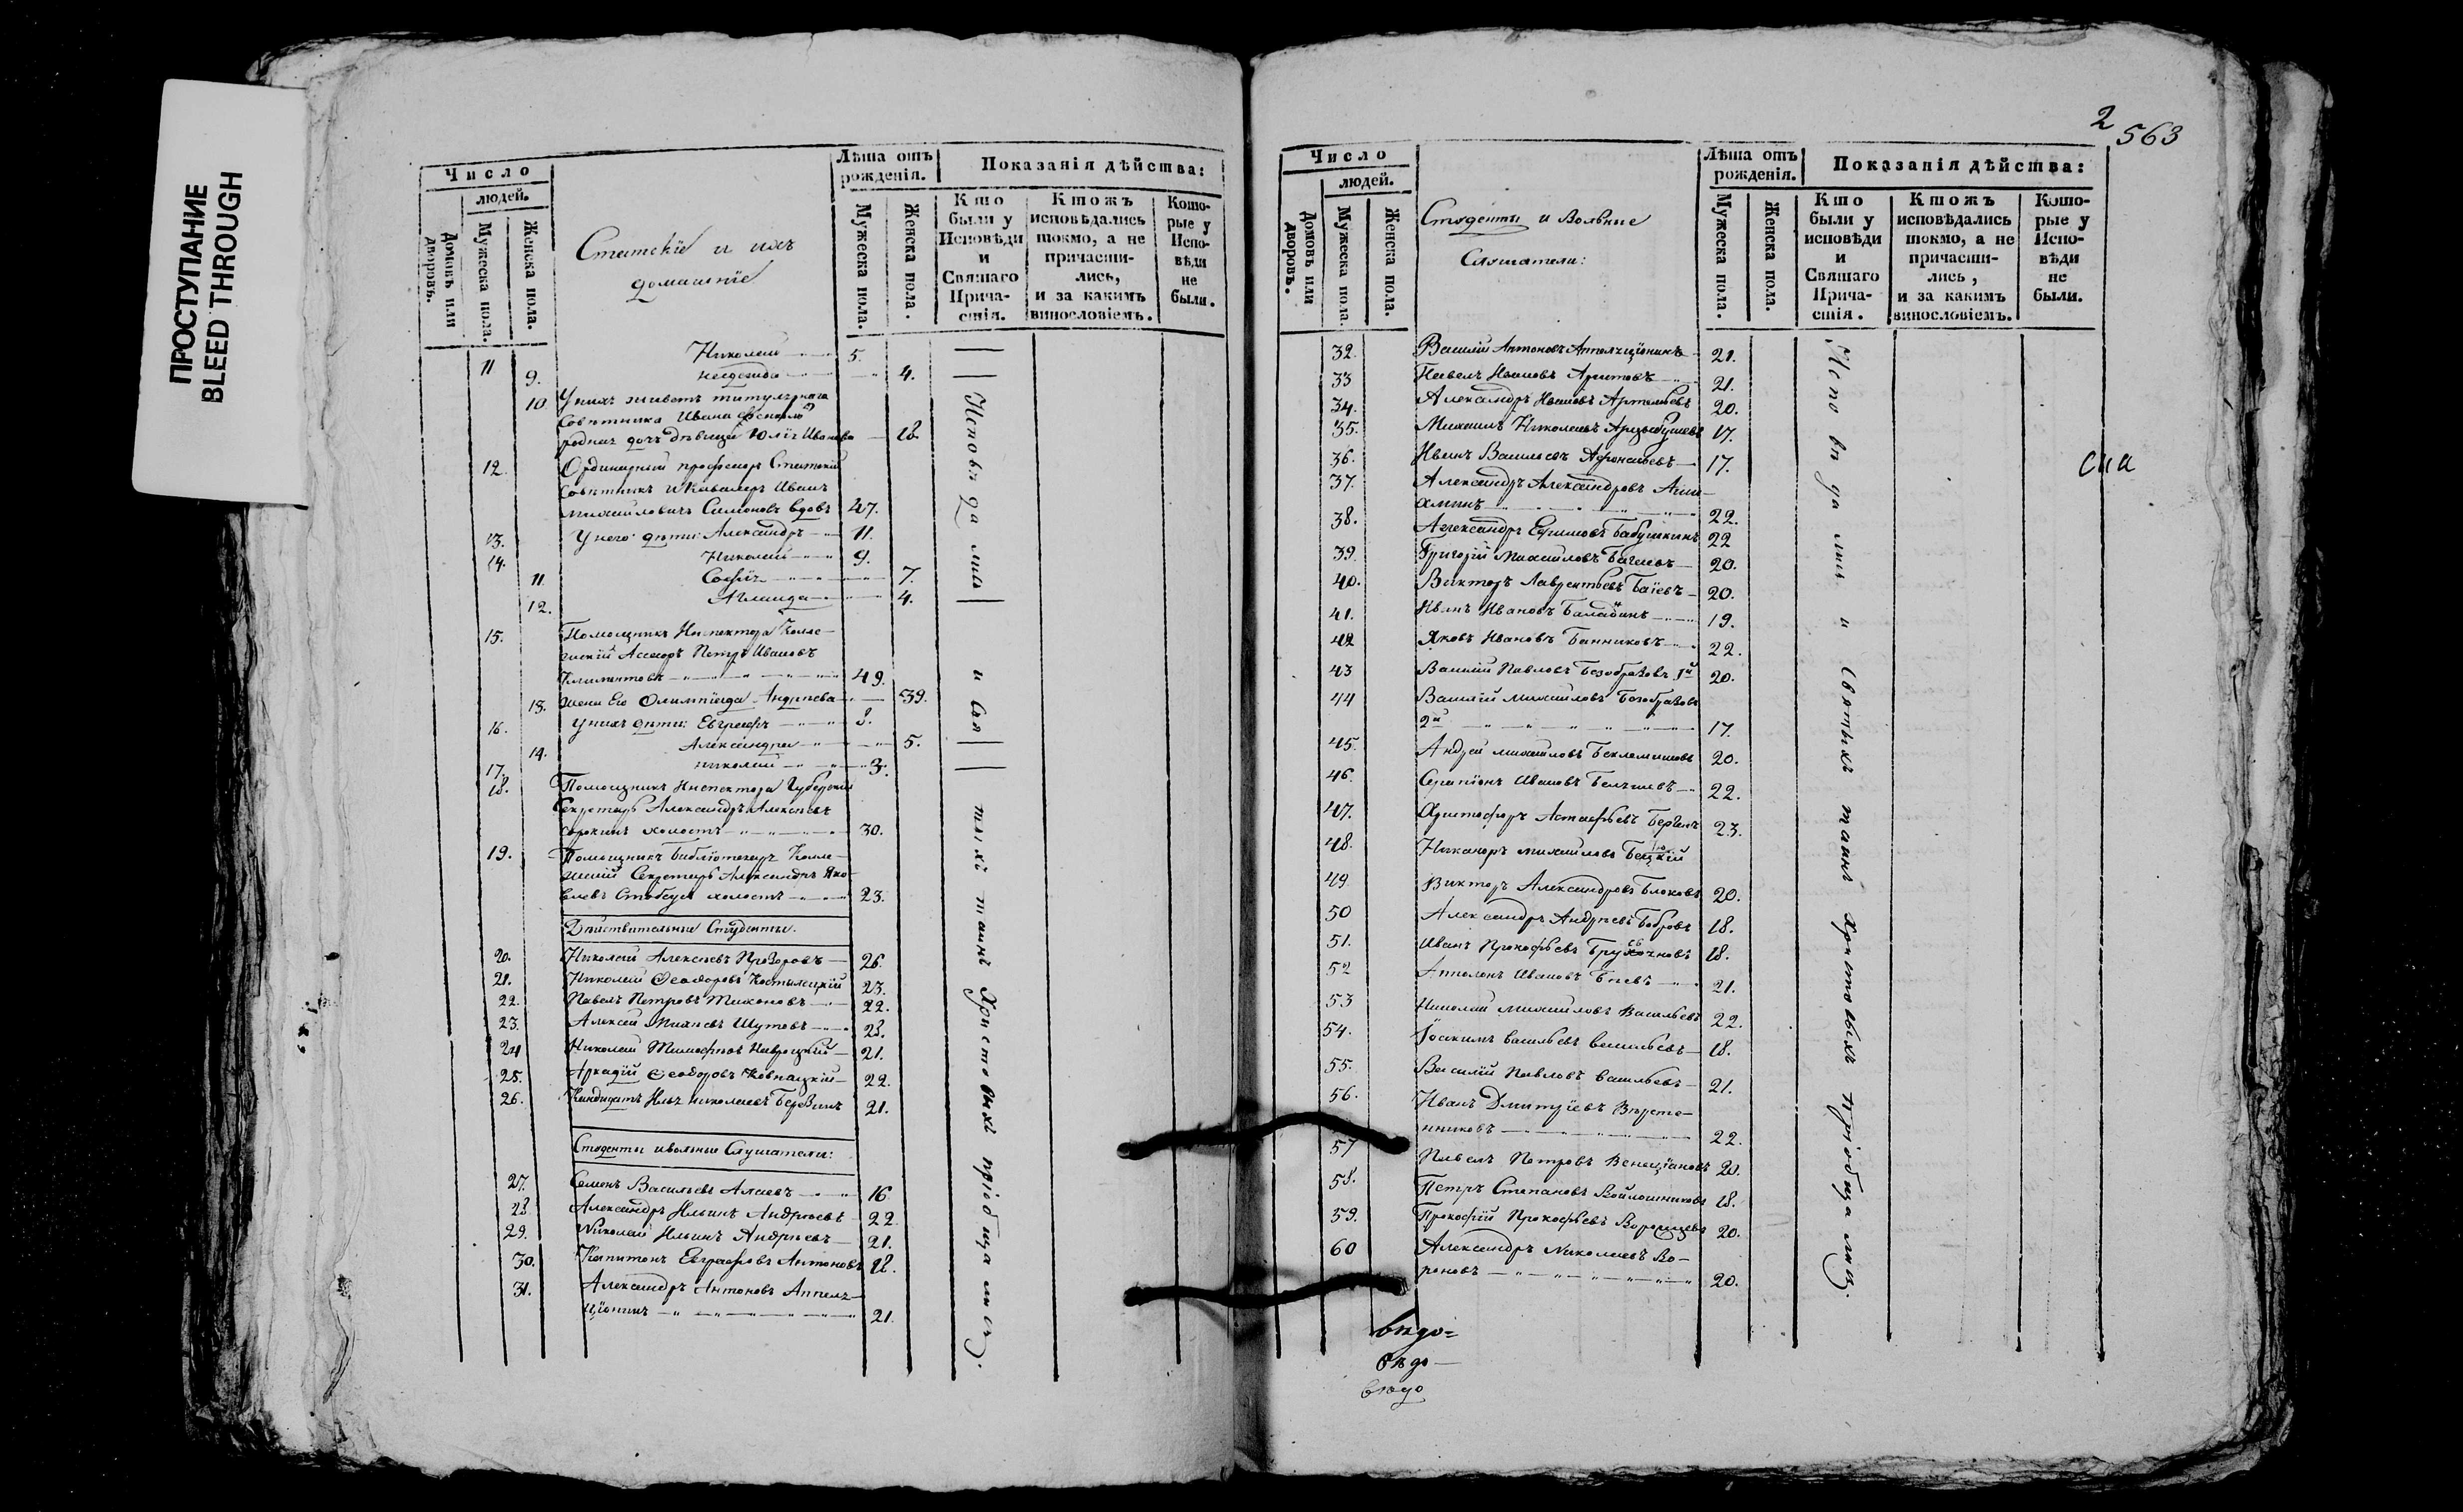 ПРОСТУПАНИЕ
BLEED THROUGH
Число
людей.
Домовъ или дворовъ.
Мужеска пола.
Женска пола.
Статскіе и ихъ
домашніе
Лѣта отъ
рожденія.
Мужеска пола.
Женска пола.
Показанія дѣйства:
Кто
были у
Исповѣди
и
Святаго
Прича-
стія.
Ктожъ
исповѣдались
токмо, а не
причасти-
лись,
и за какимъ
винословіемъ.
Кото-
рые у
Испо-
вѣди
не
были.
11 Николай 5.
9. 4.
10. У нихъ живетъ титулярнаго
Совѣтника Ивана
родная дочь дѣвица Юлія Иванова 18.
12. Ординарный профессоръ Статскій
Совѣтникъ и Кавалеръ Иванъ
Михайловичъ Симоновъ вдовъ 47.
13. У него дѣти: Александръ 11.
14. Николай 9.
11. Софія 7.
12. 4.
15. Помощникъ Инспектора Колле-
жскій Ассесоръ Петръ Ивановъ
Климентовъ 49.
13. Жена Его Олимпіада Андреева 39.
16. У нихъ дѣти: Евграфъ 8.
14. Александра 5.
17. Николай 3.
18. Помощникъ Инспектора Губернскій
Секретарь Александръ Алексѣевъ
Сорокинъ холостъ 30.
19. Помощникъ Библіотекаря Колле-
жскій Секретарь Александръ Яко-
влевъ холостъ 23.
Дѣйствительные Студенты.
20. Николай Алексѣевъ Прозоровъ 26.
21. Николай Ѳеодоровъ Костылецкій 23.
22. Павелъ Петровъ Тихоновъ 22.
23. Алексѣй Шутовъ 28.
24 Николай Тимофѣевъ Навроцкій 21.
25. Аркадій Ѳеодоровъ Ковнацкій 22.
26. Кандидатъ Илья Николаевъ Березинъ 21.
Студенты и вольные Слушатели:
27. Семенъ Васильевъ Алаевъ 16
28 Александръ Ильинъ Андреевъ 22
29. Николай Ильинъ Андреевъ 21.
30. Капитонъ Евграфовъ Антоновъ 18.
31. Александръ Антоновъ Аппель-
ціонинъ 21.
Исповѣдались и Святыхъ таинъ Христовыхъ пріобщались.
2
563
Число
людей.
Домовъ или дворовъ.
Мужеска пола.
Женска пола.
Студенты и Вольные
Слушатели:
Лѣта отъ
рожденія.
Мужеска пола.
Женска пола.
Показанія дѣйства:
Кто
были у
исповѣди
и
Святаго
Прича-
стія.
Ктожъ
исповѣдались
токмо, а не
причасти-
лись,
и за какимъ
винословіемъ.
Кото-
рые у
Испо-
вѣди
не
были.
32. Василій Антоновъ Аппелляціонинъ 21.
33 Павелъ Ивановъ 21.
34. Александръ Ивановъ Артемьевъ 20.
35. Михаилъ Николаевъ Арцыбушевъ 17.
36. Иванъ Васильевъ Афонасьевъ 17.
37. Александръ Александровъ Аши-
хминъ 22.
38. Александръ Ефимовъ Бабушкинъ 22
39. Григорій Михайловъ 20.
40. Викторъ Лаврентьевъ Баіевъ 20.
41. Иванъ Ивановъ Баладинъ 19.
42 Яковъ Ивановъ Банниковъ 22.
43 Василій Павловъ Безобразовъ 1й 20.
44 Василій Михайловъ Безобразовъ
2й 17.
45. Андрей Михайловъ Беклемишевъ 20.
46. Серапіонъ Ивановъ 22.
47. Христофоръ Астафьевъ 23.
48. Никаноръ Михайловъ
49. Викторъ Александровъ Блоковъ 20.
50 Александръ Андреевъ Бобровъ 18.
51. Иванъ Прокофьевъ 18.
52 Апполонъ Ивановъ 21.
53 Николай Михайловъ Васильевъ 22.
54. Іоакимъ Васильевъ Васильевъ 18.
55. Василій Павловъ Васильевъ 21.
56. Иванъ Дмитріевъ Верете-
нниковъ 22.
57 Павелъ Петровъ Венеціановъ 20.
58. Петръ Степановъ Войлошниковъ 18.
59. Прокофій Прокофьевъ 20.
60 Александръ Николаевъ Во-
роновъ 20.
Исповѣдались и Святыхъ таинъ Христовыхъ пріобщались.
сіи
вѣдо=
вѣдо-
вѣдо